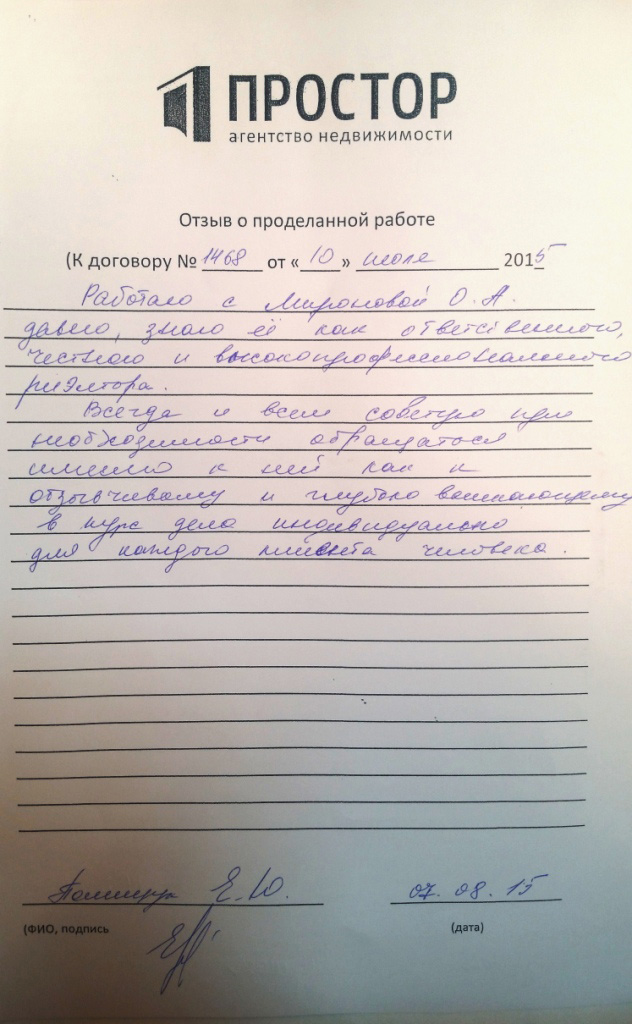 ПРОСТОР
агентство недвижимости
Отзыв о проделанной работе
(К договору № 1468 от « 10 » июля 2015
Работаю с Мироновой О. А.
давно, знаю её как ответственного,
честного и высокопрофессионального
риэлтора.
Всегда и всем советую при
необходимости обращаться
именно к ней как к
отзывчивому и глубоко вникающему
в курс дела индивидуально
для каждого клиента человека.
Е.Ю. 07.08.15
(ФИО, подпись (дата)